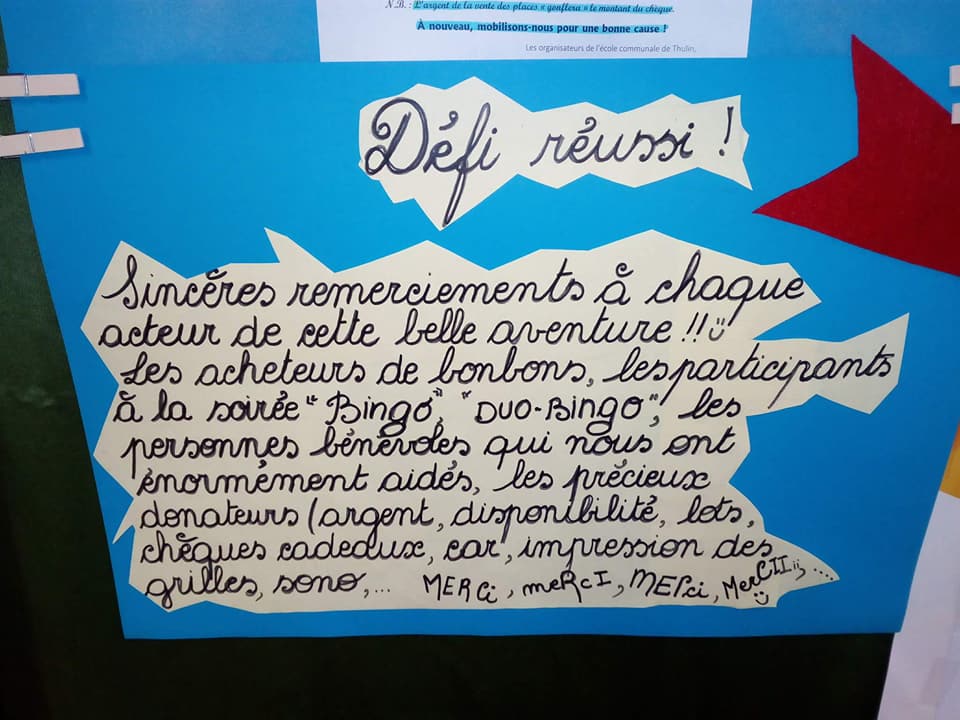 N.B. : L'argent de la vente des places « gonflera » le montant du chèque.
À nouveau, mobilisons-nous pour une bonne cause !
Les organisateurs de l'école communale de Thulin,
Défi réussi !
Sincères remerciements à chaque
acteur de cette belle aventure !!
Les acheteurs de bonbons, les participants
à la soirée "Bingo", "DUO-Bingo", les
personnes bénévoles qui nous ont
énormément aidés, les précieux
donateurs (argent, disponibilité, lots,
chèques cadeaux, car, impression des
grilles, sono,... MERCi, meRcI, MERci, MerCIIii, ....